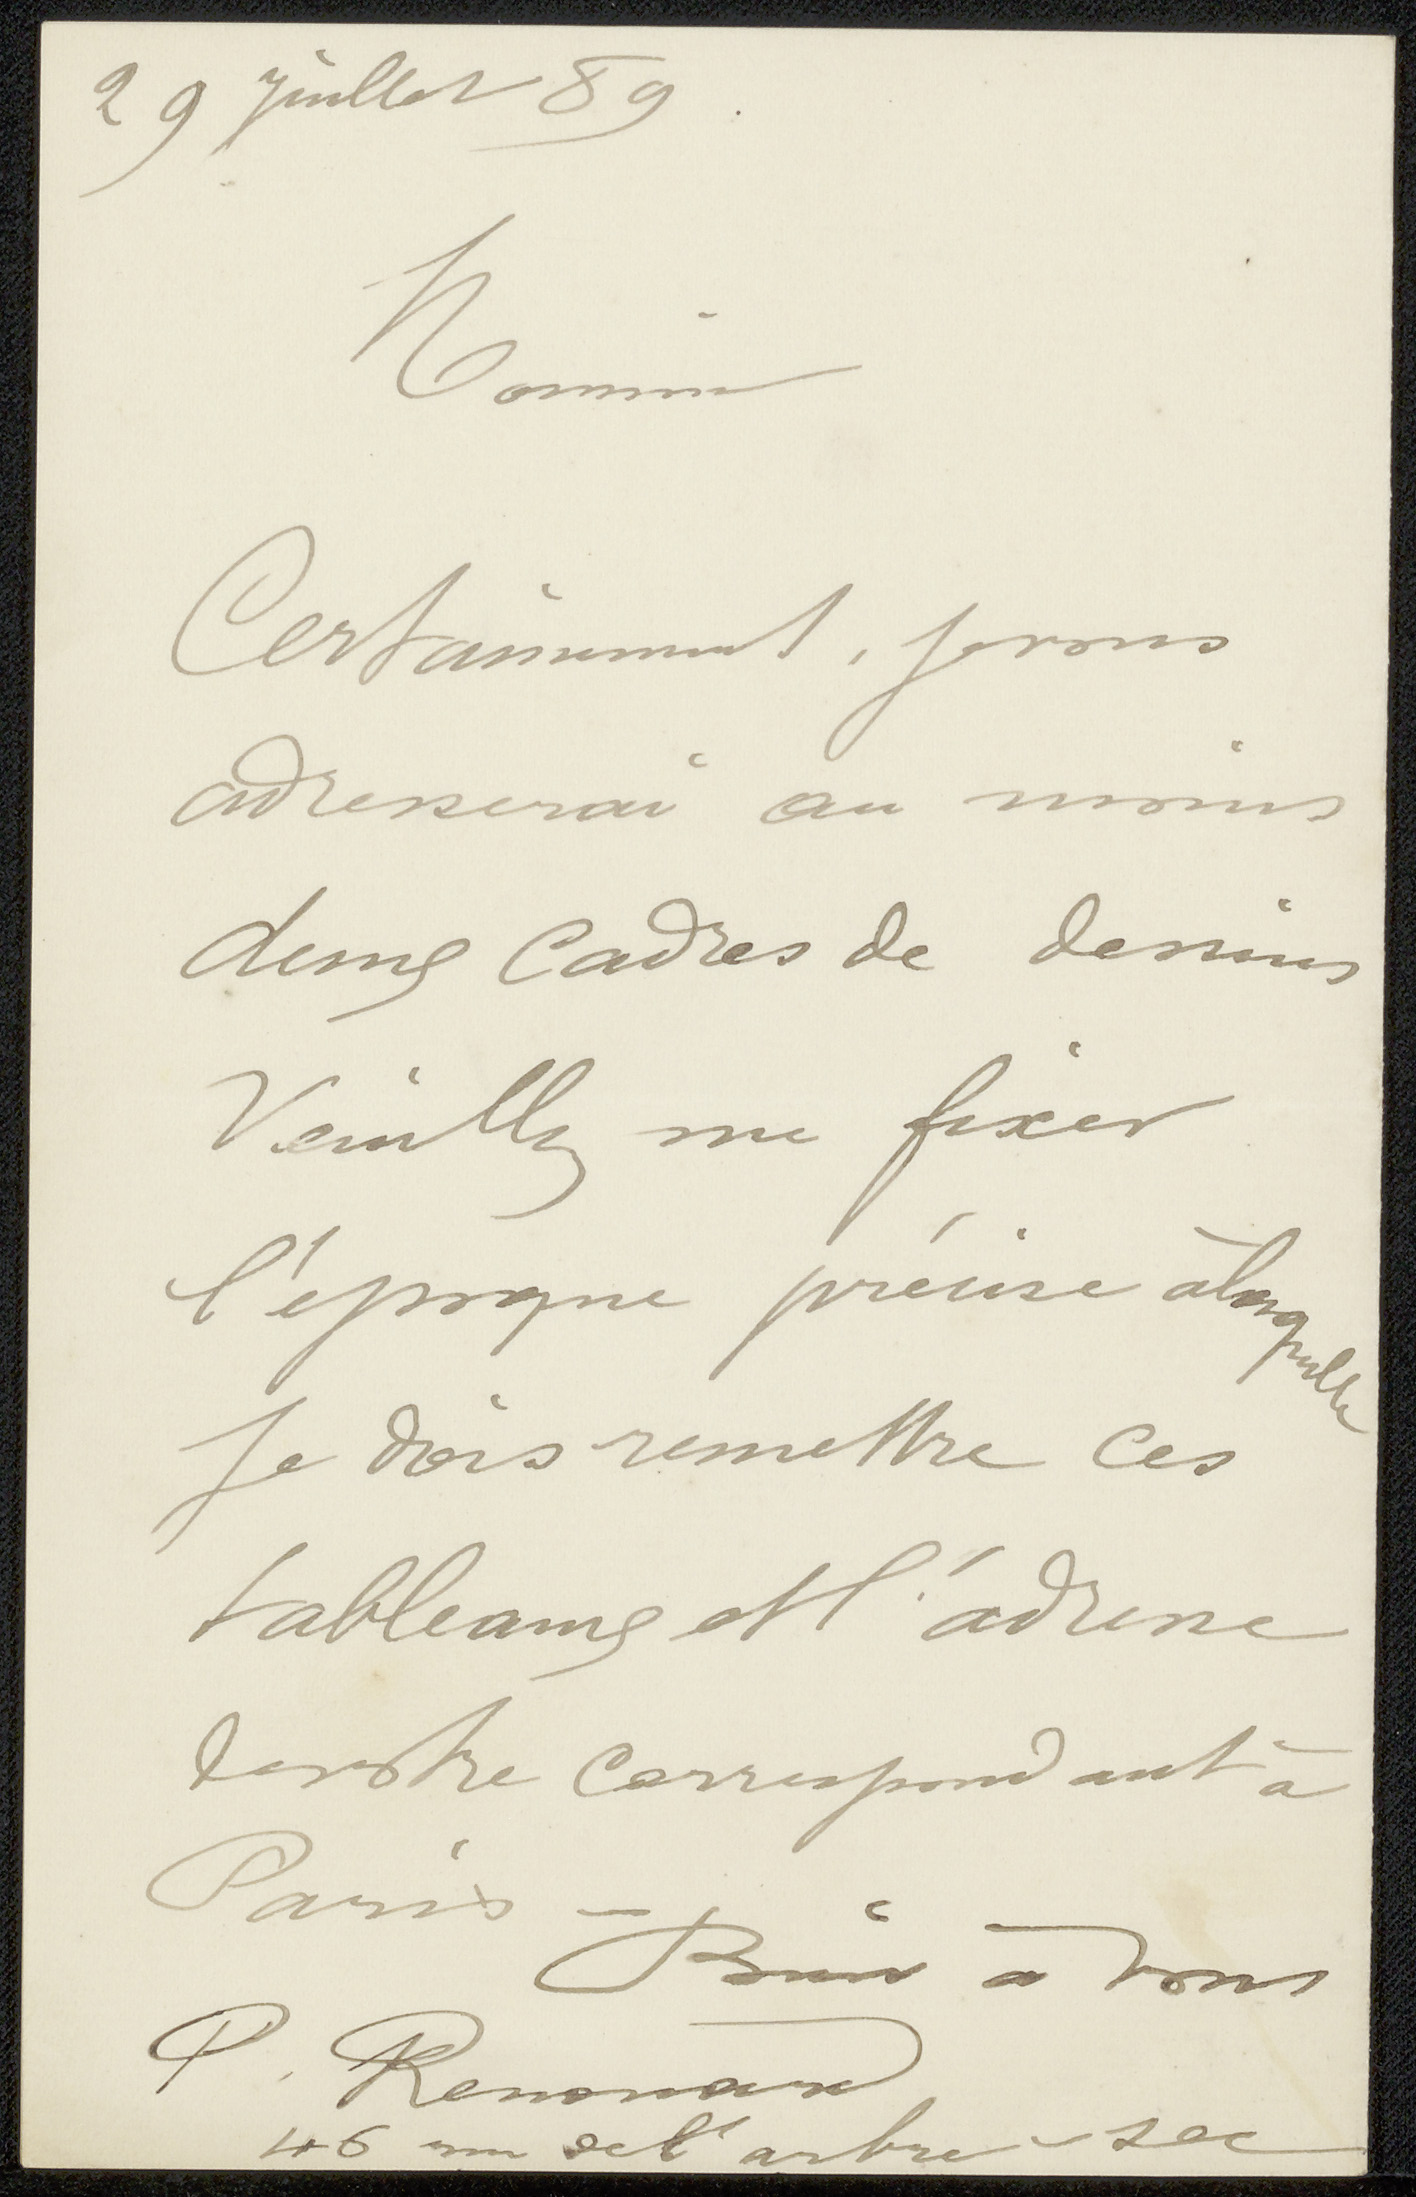 29 juillet 89
Monsieur
Certainement, je vous
adresserai au moins
deux cadres de dessins
Veuillez me fixer
l'époque précise à laquelle
je dois remettre ces
tableaux et l'adresse
de votre correspondant à
Paris –
Bien à vous
P. Renouard
46 rue de l'arbre-sec